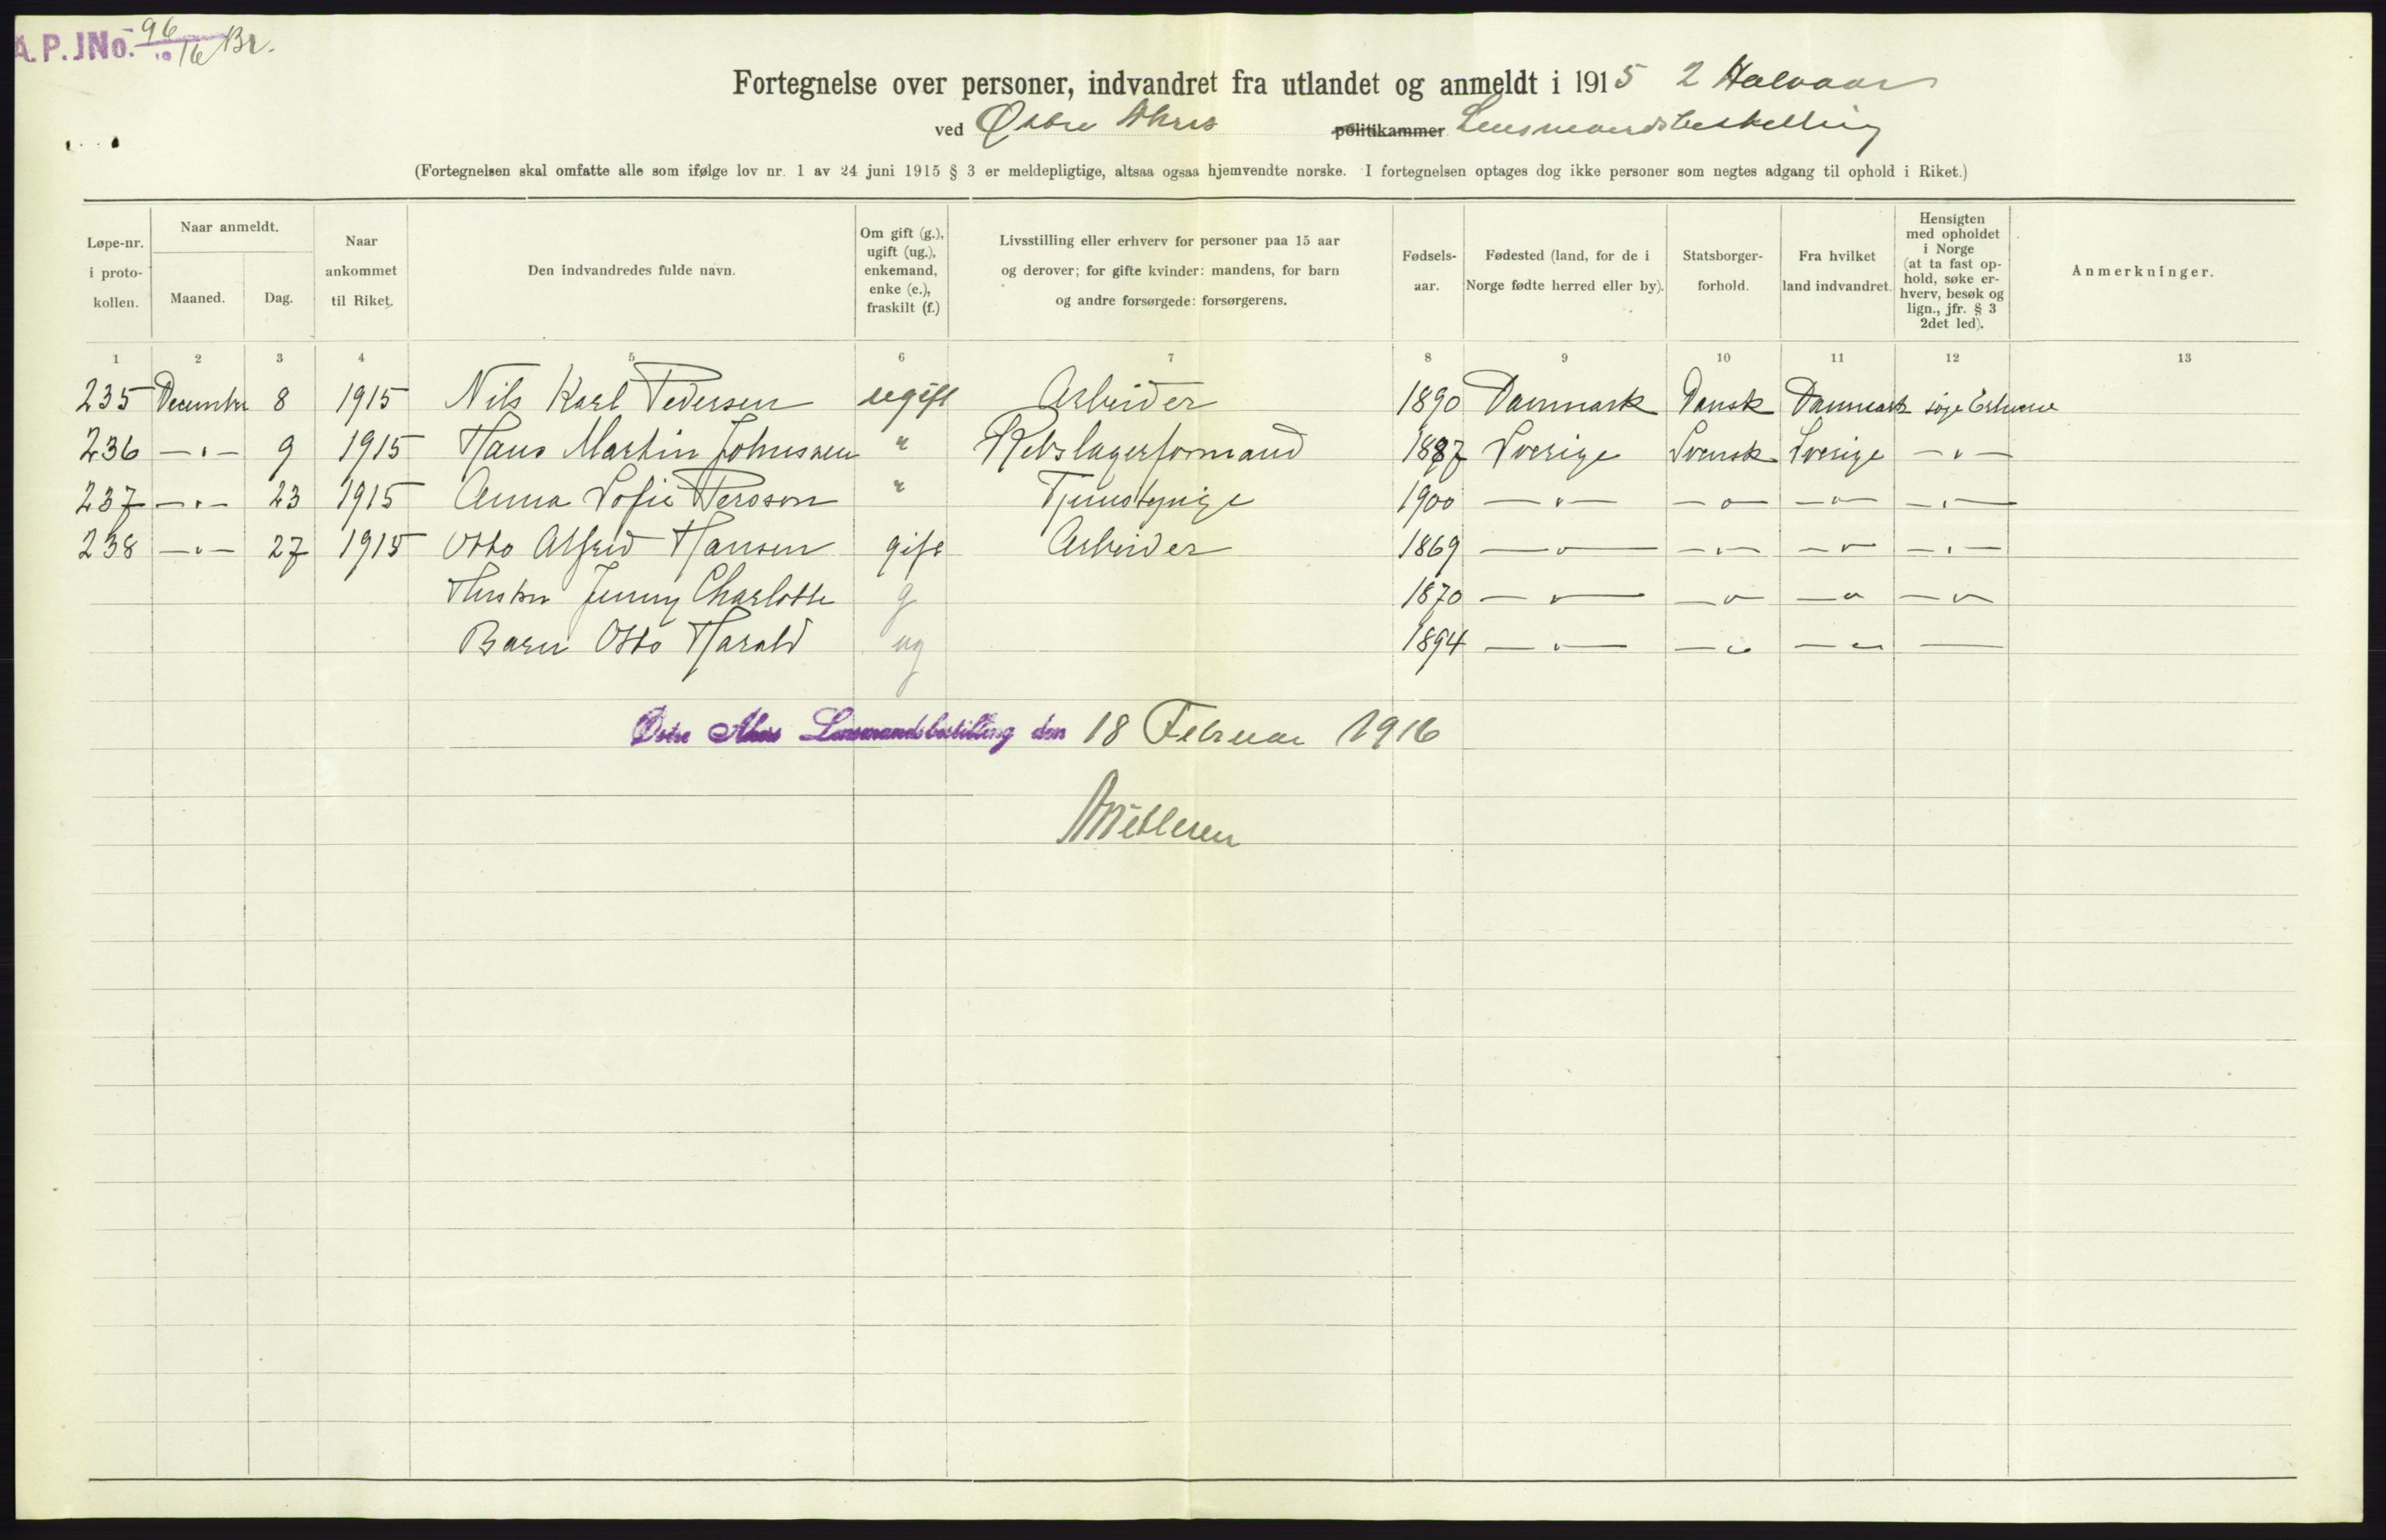 A.P.JNo. 96/1916 Br.
Fortegnelse over personer, indvandret fra utlandet og anmeldt i 1915 2 Halvaar
ved Østre Akers politikammer Lensmandsbestilling
(Fortegnelsen skal omfatte alle som ifølge lov nr. 1 av 24 juni 1915 § 3 er meldepligtige, altsaa ogsaa hjemvendte norske. I fortegnelsen optages dog ikke personer som negtes adgang til ophold i Riket.)
Løpe-nr. i proto-kollen. Naar anmeldt. Maaned. Dag. Naar ankommet til Riket. Den indvandredes fulde navn. Om gift (g.), ugift (ug.), enkemand, enke (e.), fraskilt (f.) Livsstilling eller erhverv for personer paa 15 aar og derover; for gifte kvinder: mandens, for barn og andre forsørgede: forsørgerens. Fødsels-aar. Fødested (land, for de i Norge fødte herred eller by). Statsborger-forhold. Fra hvilket land indvandret. Hensigten med opholdet i Norge (at ta fast op-hold, søke er-hverv, besøk og lign., jfr. § 3 2det led). Anmerkninger.
1 2 3 4 5 6 7 8 9 10 11 12 13
235 December 8 1915 Nils Karl Pedersen ugift Arbeider 1890 Danmark Dansk Danmark søge Erhverv
236 —„— 9 1915 Hans Martin Johnssen " Rebslagerformand 1887 Sverige Svensk Sverige —„—
237 —„— 23 1915 Anna Sofie Persson " Tjenstepige 1900 —„— —„— —„— —„—
238 —„— 27 1915 Otto Alfred Hansen gift Arbeider 1869 —„— —„— —„— —„—
Hustru Jenny Charlotte g 1870 —„— —„— —„— —„—
Barn Otto Harald ug 1894 —„— —„— —„— —
Østre Akers Lensmandsbestilling den 18 Februar 1916